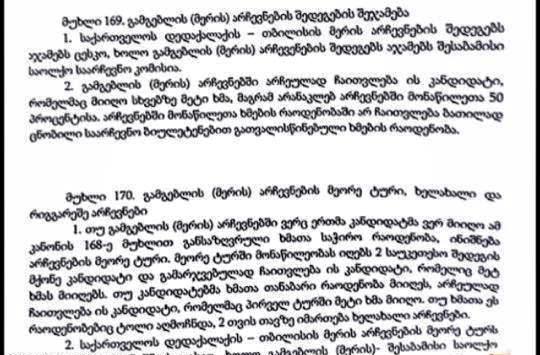 მუხლი 169. გამგებლის (მერის) არჩევნების შედეგების შეჯამება
1. საქართველოს დედაქალაქის – თბილისის მერის არჩევნების შედეგებს
აჯამებს ცესკო, ხოლო გამგებლის (მერის) არჩევნების შედეგებს აჯამებს შესაბამისი
საოლქო საარჩევნო კომისია.
2. გამგებლის (მერის) არჩევნებში არჩეულად ჩაითვლება ის კანდიდატი,
რომელმაც მიიღო სხვებზე მეტი ხმა, მაგრამ არანაკლებ არჩევნებში მონაწილეთა 50
პროცენტისა. არჩევნებში მონაწილეთა ხმების რაოდენობაში არ ჩაითვლება ბათილად
ცნობილი საარჩევნო ბიულეტენებით გათვალისწინებული ხმების რაოდენობა.
მუხლი 170. გამგებლის (მერის) არჩევნების მეორე ტური, ხელახალი და
რიგგარეშე არჩევნები
1. თუ გამგებლის (მერის) არჩევნებში ვერც ერთმა კანდიდატმა ვერ მიიღო ამ
კანონის 168-ე მუხლით განსაზღვრული ხმათა საჭირო რაოდენობა, ინიშნება
არჩევნების მეორე ტური. მეორე ტურში მონაწილეობას იღებს 2 საუკეთესო შედეგის
მქონე კანდიდატი და გამარჯვებულად ჩაითვლება ის კანდიდატი, რომელიც მეტ
ხმას მიიღებს. თუ კანდიდატებმა ხმათა თანაბარი რაოდენობა მიიღეს, არჩეულად
ჩაითვლება ის კანდიდატი, რომელმაც პირველ ტურში მეტი ხმა მიიღო. თუ ხმათა ეს
რაოდენობებიც ტოლი აღმოჩნდა, 2 თვის თავზე იმართება ხელახალი არჩევნები.
2. საქართველოს დედაქალაქის – თბილისის მერის არჩევნების მეორე ტურს
ხოლო გამგებლის (მერის)- შესაბამისი საოლქო